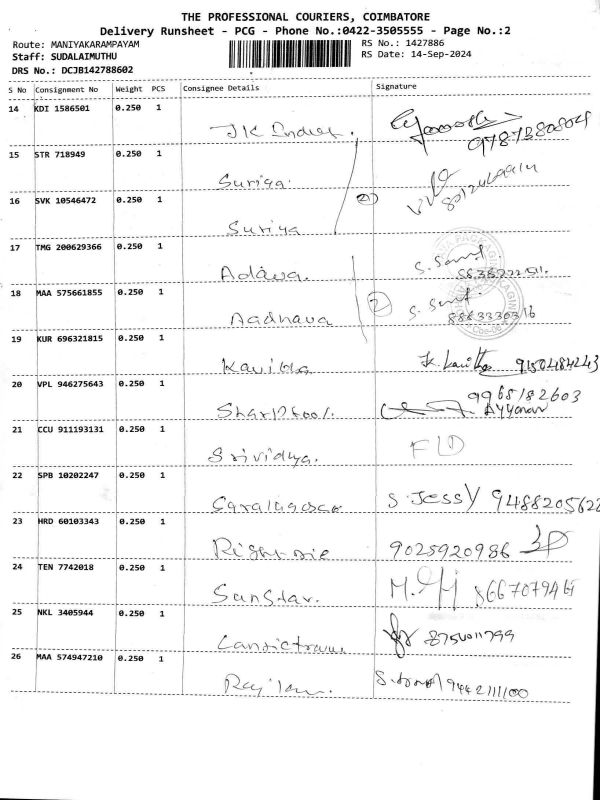 THE PROFESSIONAL COURIERS, COIMBATORE
Delivery Runsheet - PCG - Phone No.:0422-3505555 - Page No.:2
Route: MANIYAKARAMPAYAM
RS No.: 1427886
Staff: SUDALAIMUTHU
RS Date: 14-Sep-2024
DRS No.: DCJB142788602
S No Consignment No Weight PCS Consignee Details Signature
14 KDI 1586501 0.250 1
JK
15 STR 718949 0.250 1
Suriya
16 SVK 10546472 0.250 1
Suriya
17 TMG 200629366 0.250 1
Adava
18 MAA 575661855 0.250 1
Aadhava
2
19 KUR 696321815 0.250 1
Kavitha K. Kavitha 9150484243
20 VPL 946275643 0.250 1
9965182603
Ayyanar
21 CCU 911193131 0.250 1
Srividya.
22 SPB 10202247 0.250 1
S. Jessy 9488205622
23 HRD 60103343 0.250 1
9025920986
24 TEN 7742018 0.250 1
Sanstar.
25 NKL 3405944 0.250 1
8754011799
26 MAA 574947210 0.250 1
9442111100